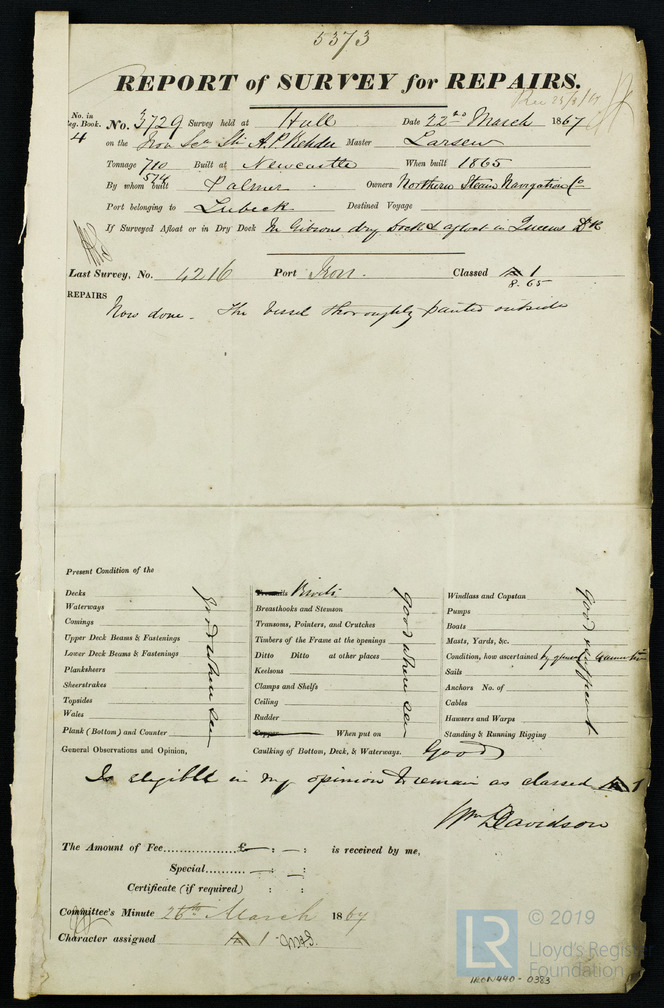 5373
REPORT of SURVEY for REPAIRS.
Rec 25/3/67
No. in Reg. Book. No. 3729 Survey held at Hull Date 22nd March 1867
4 on the Iron Scr Str A.P. Rehder Master Larsen
Tonnage 710 Built at Newcastle When built 1865
574
By whom built Palmer Owners Northern Steam Navigation Co
Port belonging to Lubeck Destined Voyage
If Surveyed Afloat or in Dry Dock In Gibsons dry Dock & afloat in Queens Dk
Last Survey, No. 4216 Port Iron. Classed A 1
8.65
REPAIRS
Now done. The Vessel thoroughly painted outside
Present Condition of the
Decks
Waterways
Comings
Upper Deck Beams & Fastenings
Lower Deck Beams & Fastenings
Planksheers
Sheerstrakes
Topsides
Wales
Plank (Bottom) and Counter
good where seen
Rivets
Breasthooks and Stemson
Transoms, Pointers, and Crutches
Timbers of the Frame at the openings
Ditto Ditto at other places
Keelsons
Clamps and Shelfs
Ceiling
Rudder
Copper When put on
good where seen
Caulking of Bottom, Deck, & Waterways. Good
Windlass and Capstan
Pumps
Boats
Masts, Yards, &c.
Condition, how ascertained by general examination
Sails
Anchors No. of
Cables
Hawsers and Warps
Standing & Running Rigging
Good & efficient
General Observations and Opinion,
Is eligible in my opinion to remain as classed A 1
Wm Davidson
The Amount of Fee............... £ : - : is received by me,
Special.......... - : -
Certificate (if required) : :
Committee's Minute 26th March 1867
Character assigned A 1
© 2019
LR
Lloyd's Register
Foundation
IRON440-0383